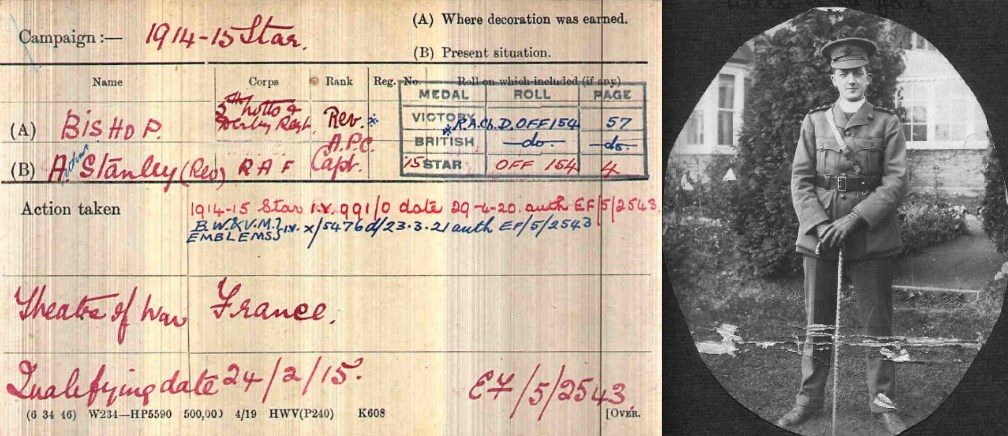 (A) Where decoration was earned.
Campaign :— 1914-15 Star.
(B) Present situation.
Name Corps Rank Reg. No. Roll on which included (if any)
MEDAL ROLL PAGE
(A) BISHOP. 5th Notts & Derby Regt. Rev. *
VICTORY * R.A.Ch.D. OFF 154 57
A.P.C.
BRITISH —do— —do—
(B) H. Stanley (Rev) R A F Capt.
'15 STAR OFF 154 4
Action taken 1914-15 Star I.V. 991/0 date 29-4-20. auth EF/5/2543.
B.W.&V.M.} IV. X/5476d/23.3.21 auth EF/5/2543
EMBLEMS}
Theatre of War France.
Qualifying date 24/2/15. EF/5/2543
(6 34 46) W234—HP5590 500,000 4/19 HWV(P240) K608 [OVER.